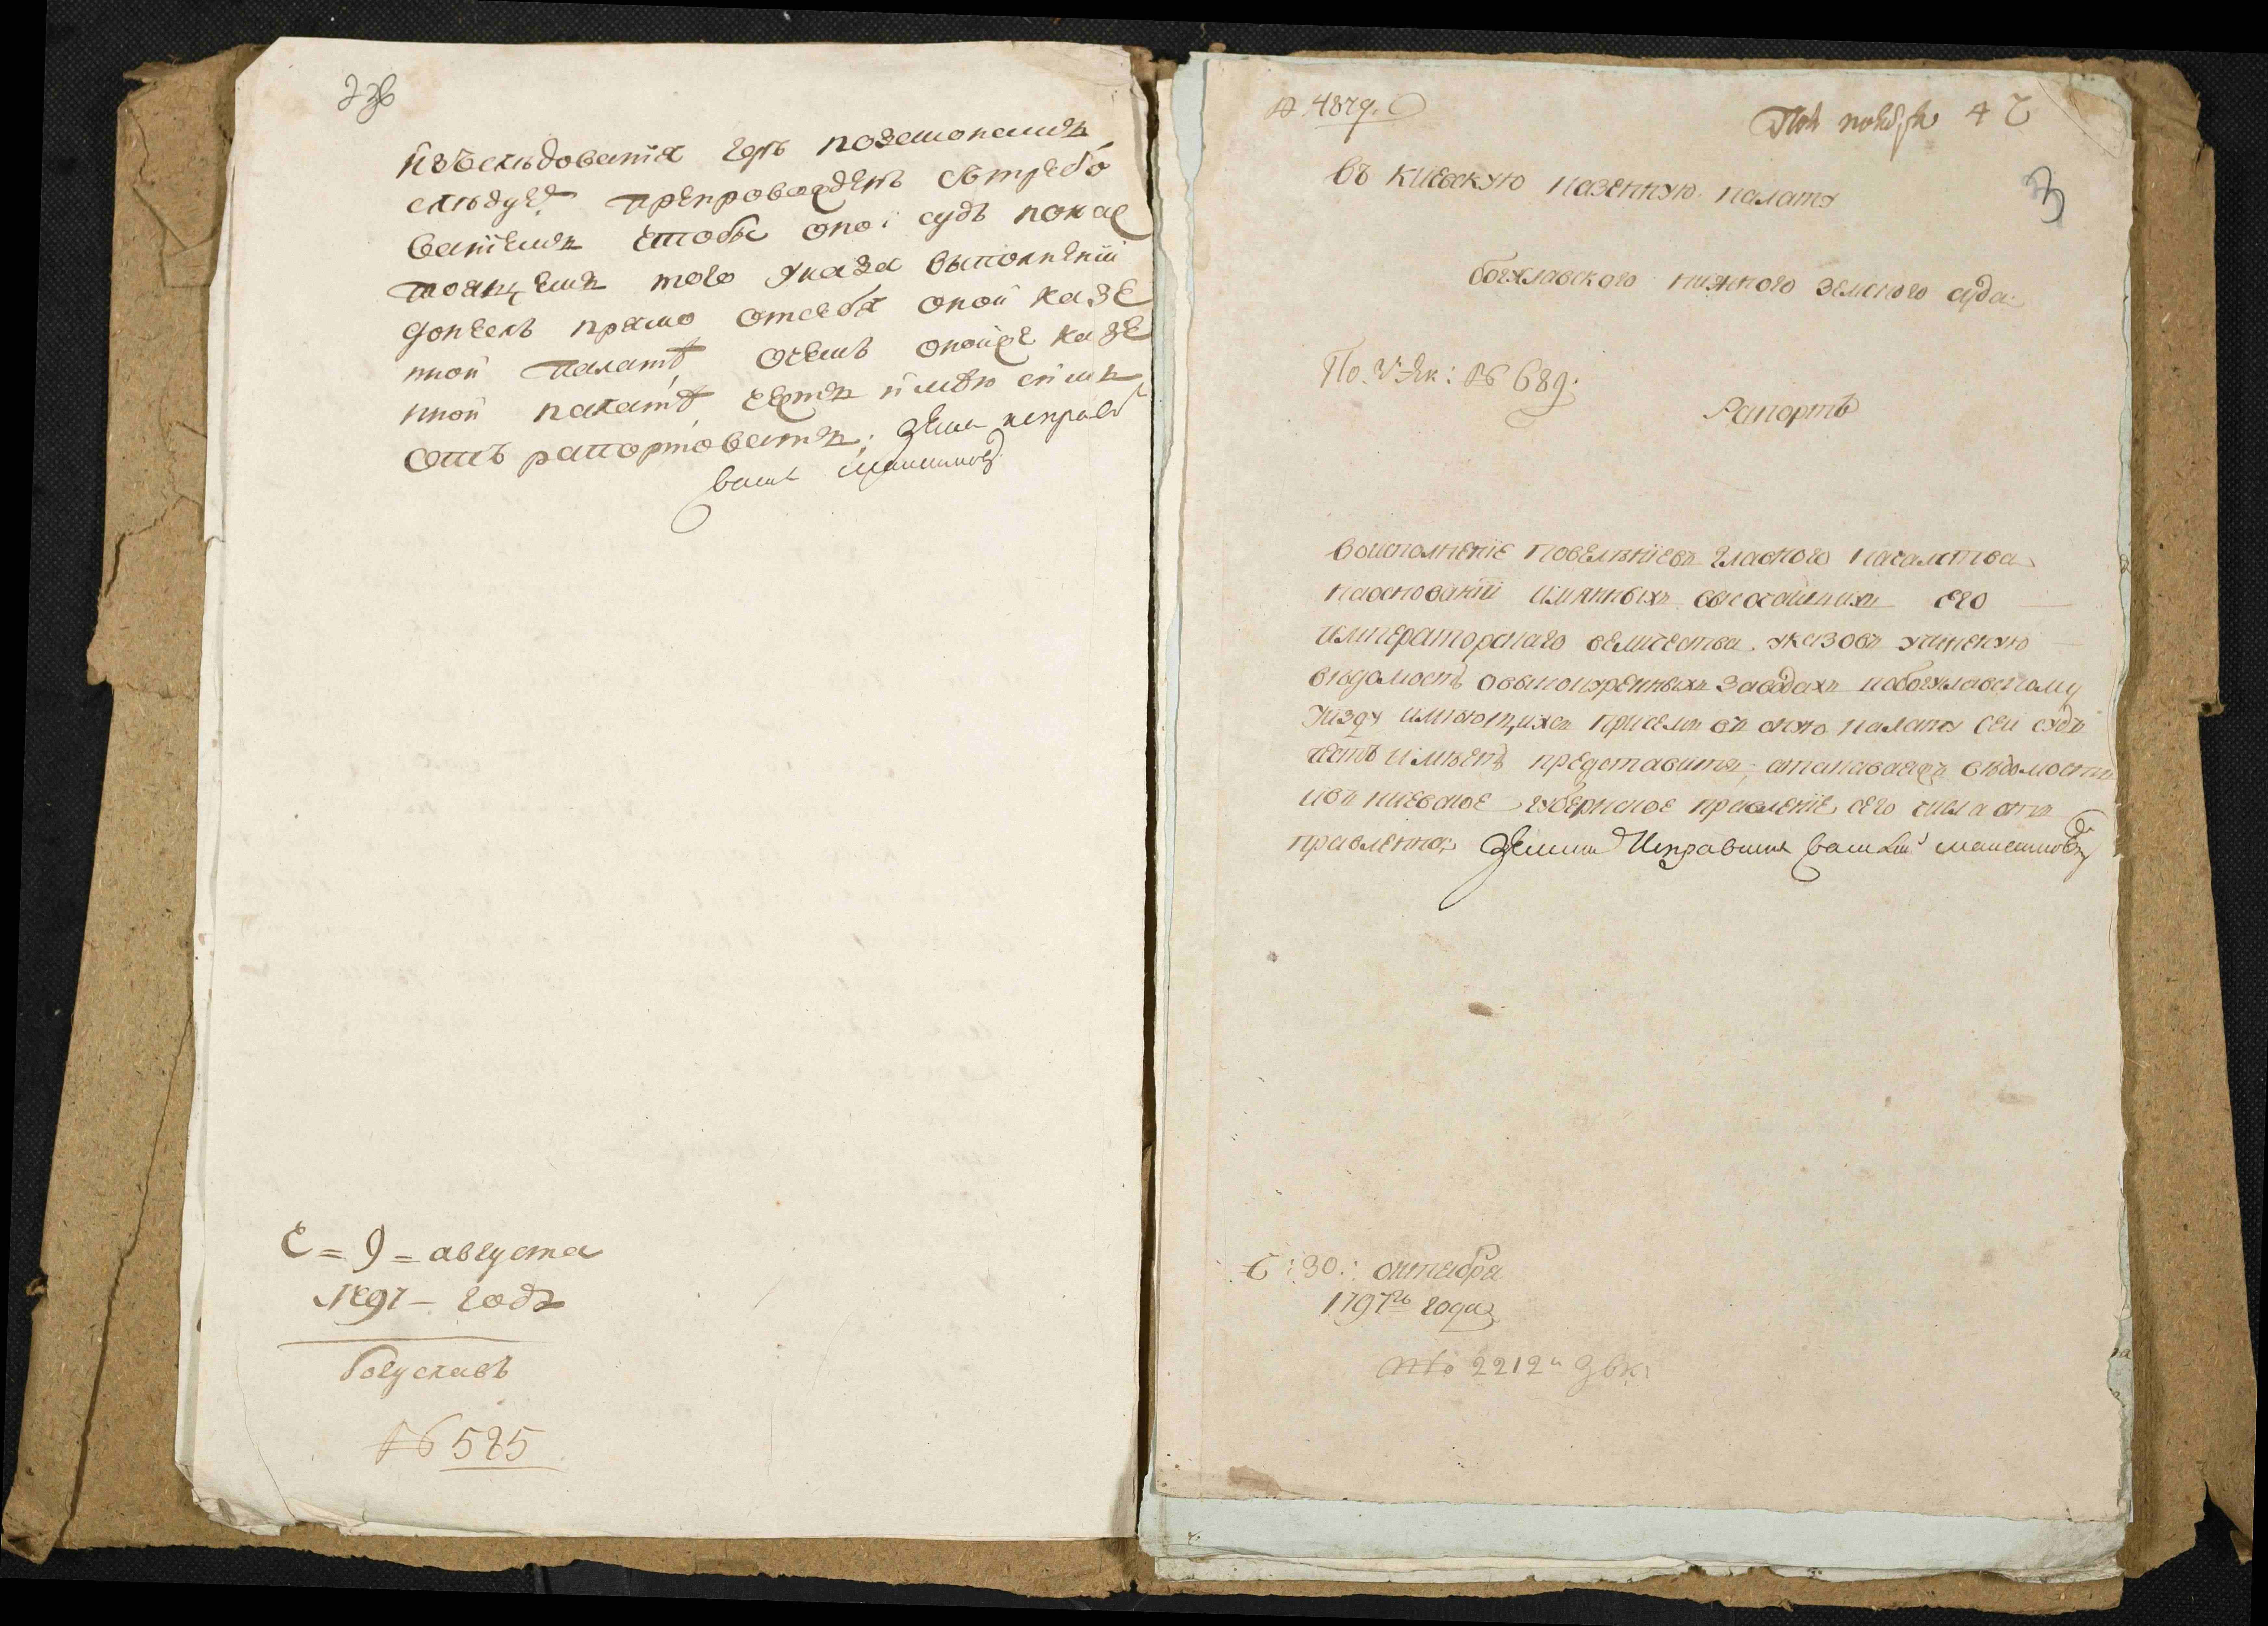 изъследования чрезъ
следуе препровожденъ стребо
ваниемъ чтобы оной судъ покас
тоящемъ того указа выполнений
донеслъ прямо отсебя оной казе
нной палатѣ очемъ онойже казе
нной палатѣ честь имѣю симъ
рапортовать: земс исправ
С = 9 = августа
1797 – годъ
Богуславъ
№ 585
№ 487
Пол ноября 4
3
Въ киевскую казенную палату
богуславского нижного земского суда
По. № 689.
Рапортъ
Воисполнение повелениевъ главного началства
наосновании имянныхъ высочайшихъ его
императорскаго величества указовъ учиненую
вѣдомость овинокуренныхъ заводахъ побогуславскому
уезду имѣющихся присемъ въ оную палату сей судъ
честь имѣетъ представить; аттаковаяжъ вѣдомость
ивъ киевское губернское правление сего числа отъ
правленна; Земски Исправник
С: 30: октября
1797го года
2212